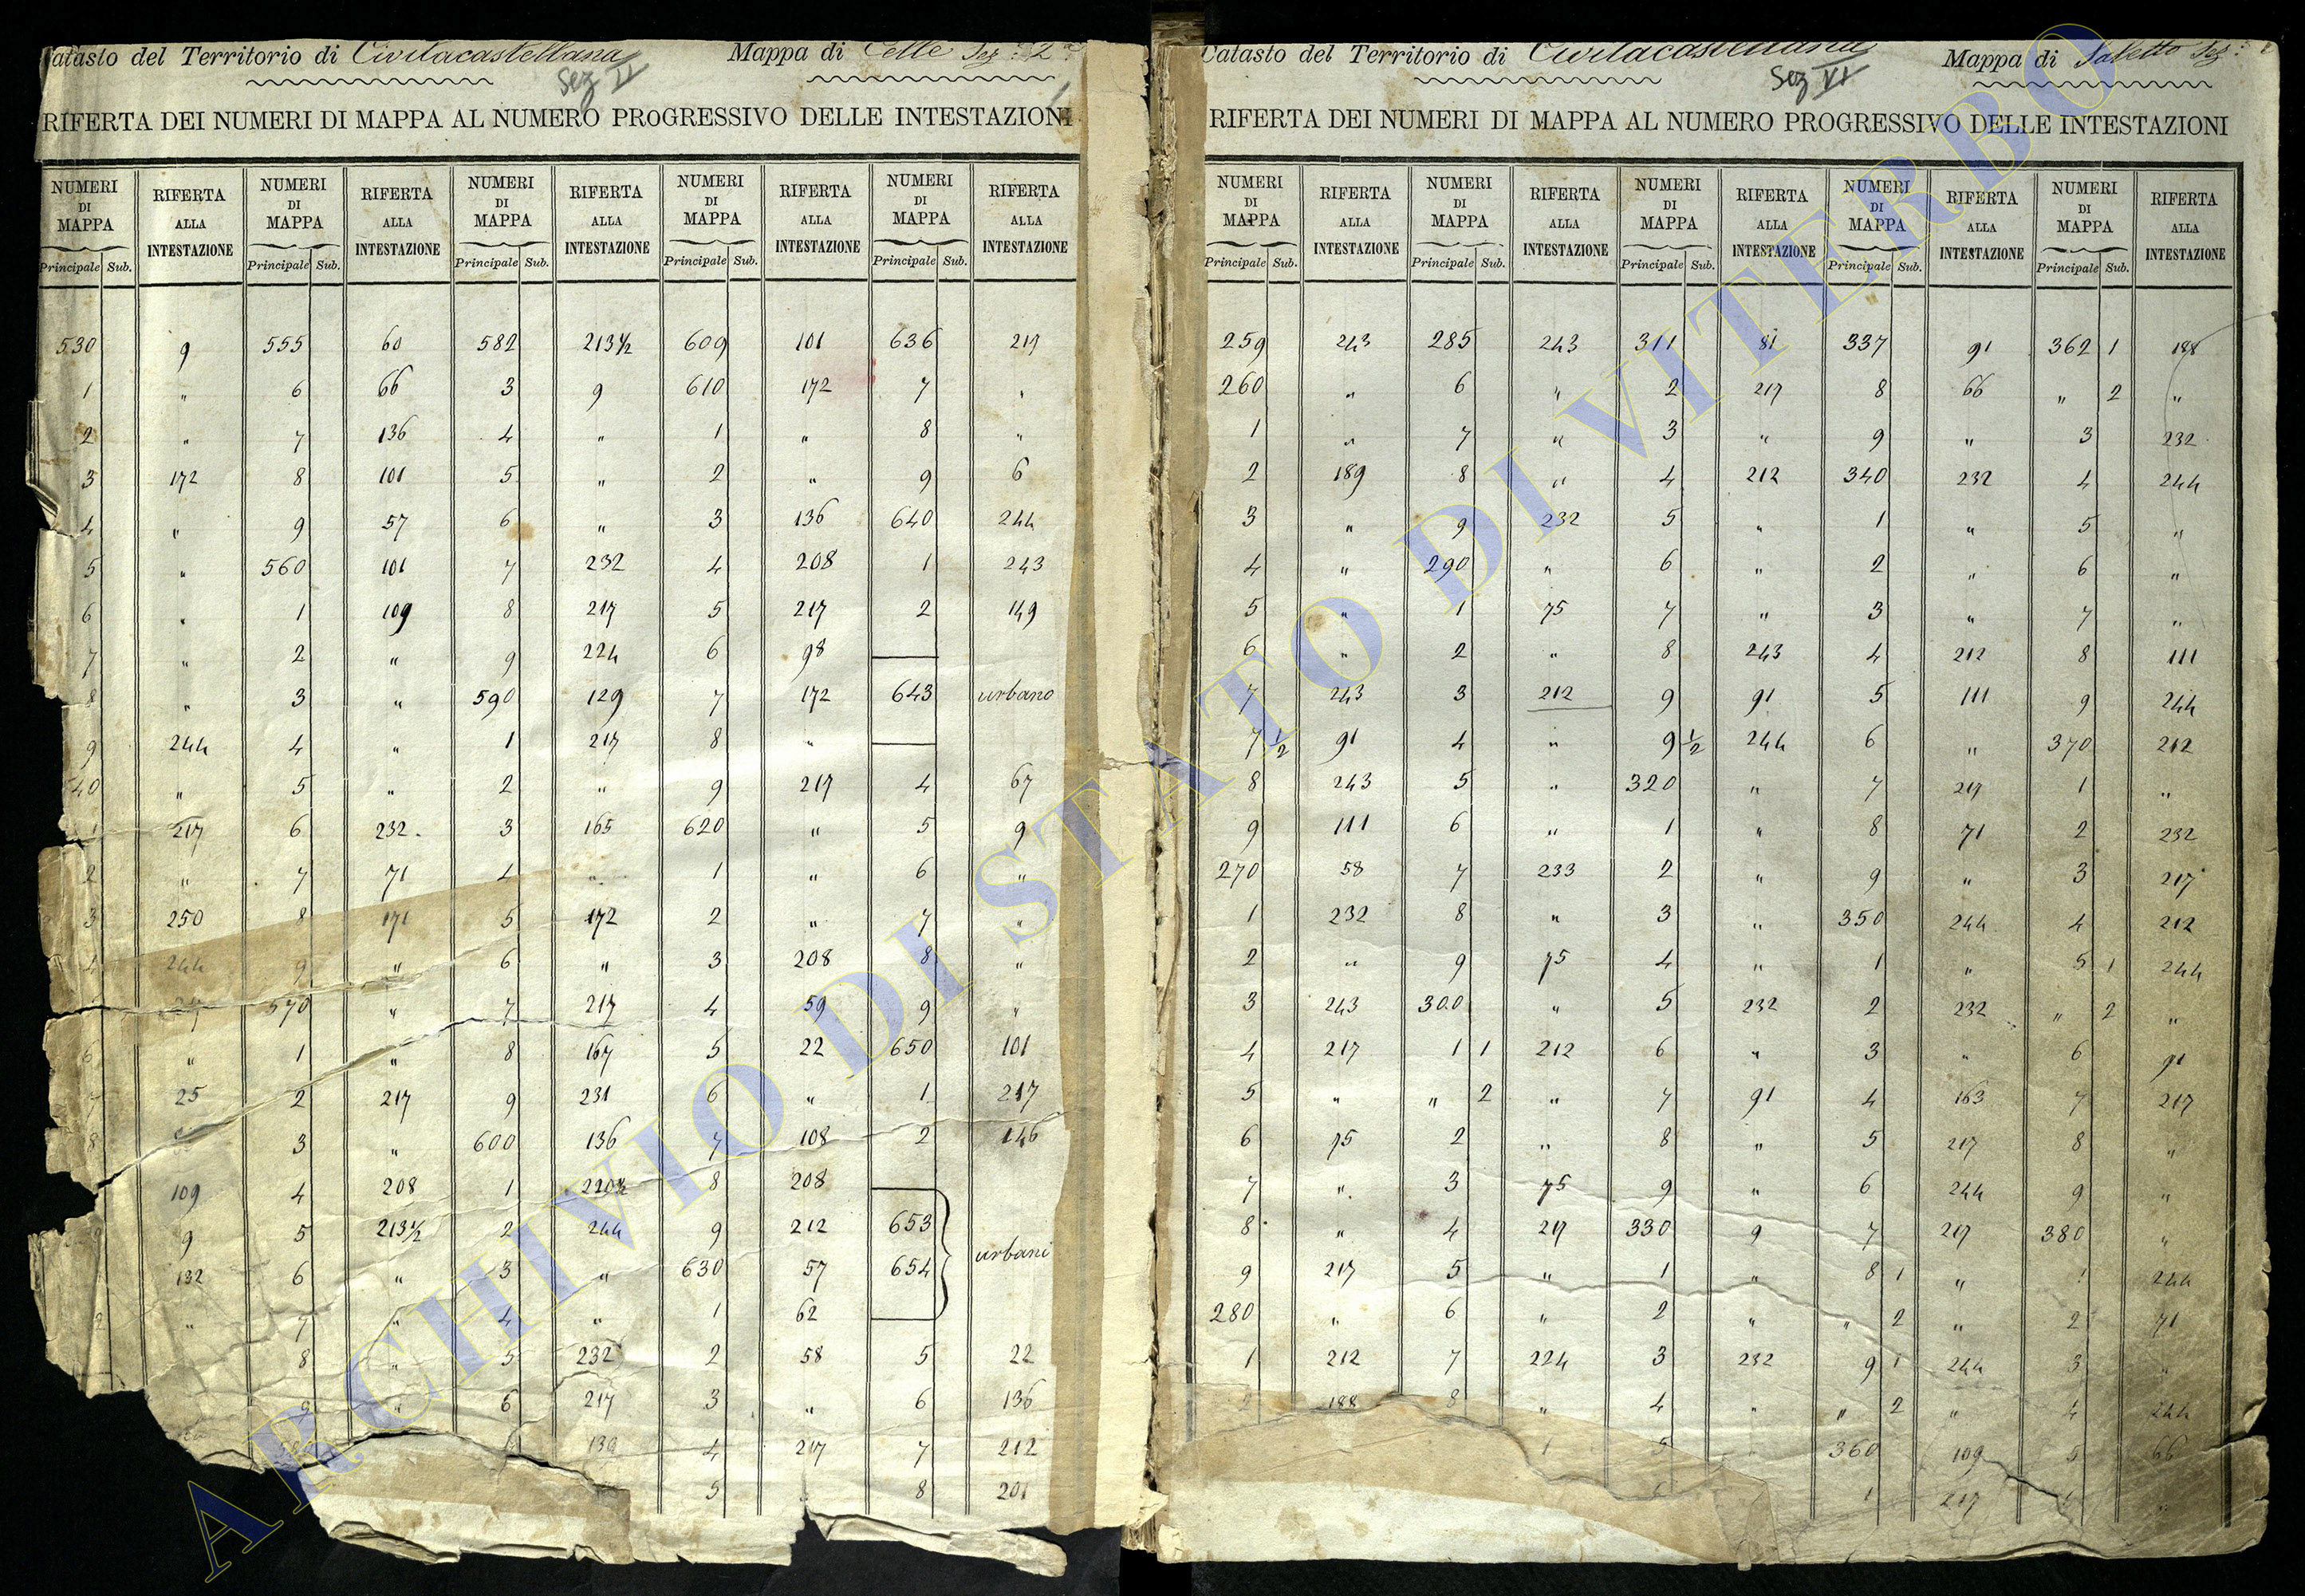 Catasto del Territorio di Civitacastellana Mappa di Celle Sez: 2ª
Sez II
RIFERTA DEI NUMERI DI MAPPA AL NUMERO PROGRESSIVO DELLE INTESTAZIONI
NUMERI DI MAPPA RIFERTA ALLA INTESTAZIONE NUMERI DI MAPPA RIFERTA ALLA INTESTAZIONE NUMERI DI MAPPA RIFERTA ALLA INTESTAZIONE NUMERI DI MAPPA RIFERTA ALLA INTESTAZIONE NUMERI DI MAPPA RIFERTA ALLA INTESTAZIONE
Principale Sub. Principale Sub. Principale Sub. Principale Sub. Principale Sub.
530 9 555 60 582 213½ 609 101 636 217
1 " 6 66 3 9 610 172 7 "
2 " 7 136 4 " 1 " 8 "
3 172 8 101 5 " 2 " 9 6
4 " 9 57 6 " 3 136 640 244
5 " 560 101 7 232 4 208 1 243
6 " 1 109 8 217 5 217 2 149
7 " 2 " 9 224 6 98
8 " 3 " 590 129 7 172 643 urbano
9 244 4 " 1 217 8 "
40 " 5 " 2 " 9 217 4 67
1 217 6 232 3 165 620 " 5 9
2 " 7 71 4 " 1 " 6 "
3 250 8 171 5 172 2 " 7 "
4 244 9 " 6 " 3 208 8 "
217 570 " 7 217 4 59 9 "
6 " 1 " 8 167 5 22 650 101
7 25 2 217 9 231 6 " 1 217
8 3 " 600 136 7 108 2 146
109 4 208 1 220½ 8 208
9 5 213½ 2 244 9 212 653
132 6 " 3 " 630 57 654 urbani
2 " 7 " 4 " 1 62
8 " 5 232 2 58 5 22
9 " 6 217 3 " 6 136
139 4 217 7 212
5 8 201
Catasto del Territorio di Civitacastellana Mappa di Saletto Sez:
Sez VI
RIFERTA DEI NUMERI DI MAPPA AL NUMERO PROGRESSIVO DELLE INTESTAZIONI
NUMERI DI MAPPA RIFERTA ALLA INTESTAZIONE NUMERI DI MAPPA RIFERTA ALLA INTESTAZIONE NUMERI DI MAPPA RIFERTA ALLA INTESTAZIONE NUMERI DI MAPPA RIFERTA ALLA INTESTAZIONE NUMERI DI MAPPA RIFERTA ALLA INTESTAZIONE
Principale Sub. Principale Sub. Principale Sub. Principale Sub. Principale Sub.
259 243 285 243 311 81 337 91 362 1 188
260 " 6 " 2 217 8 66 " 2 "
1 " 7 " 3 " 9 " 3 232
2 189 8 " 4 212 340 232 4 244
3 " 9 232 5 " 1 " 5 "
4 " 290 " 6 " 2 " 6 "
5 " 1 75 7 " 3 " 7 "
6 " 2 " 8 243 4 212 8 111
7 243 3 212 9 91 5 111 9 244
7 ½ 91 4 " 9 ½ 244 6 " 370 212
8 243 5 " 320 " 7 217 1 "
9 111 6 " 1 " 8 71 2 232
270 58 7 233 2 " 9 " 3 217
1 232 8 " 3 " 350 244 4 212
2 " 9 75 4 " 1 " 5 1 244
3 243 300 " 5 232 2 232 " 2 "
4 217 1 1 212 6 " 3 " 6 91
5 " " 2 " 7 91 4 163 7 217
6 75 2 " 8 " 5 217 8 "
7 " 3 75 9 " 6 244 9 "
8 " 4 217 330 9 7 217 380 "
9 217 5 " 1 " 8 1 " 1 244
280 " 6 " 2 " " 2 " 2 71
1 212 7 224 3 232 9 1 244 3 "
2 188 8 " 4 " " 2 " 4 244
5 360 109 5 66
6 1 217 "
ARCHIVIO DI STATO DI VITERBO